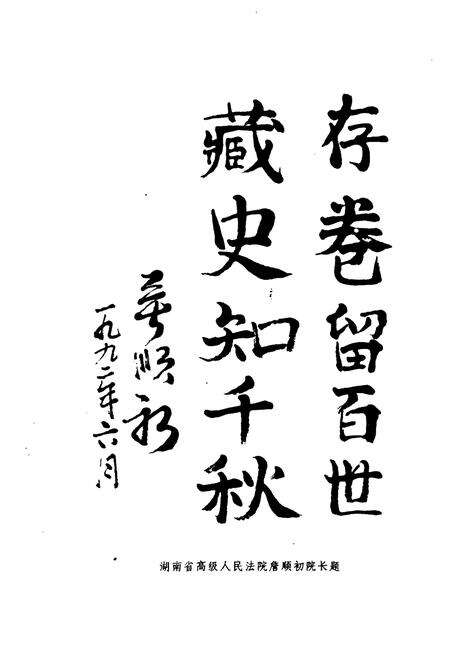 存卷留百世
藏史知千秋
詹顺初
一九九二年六月
湖南省高级人民法院詹顺初院长题